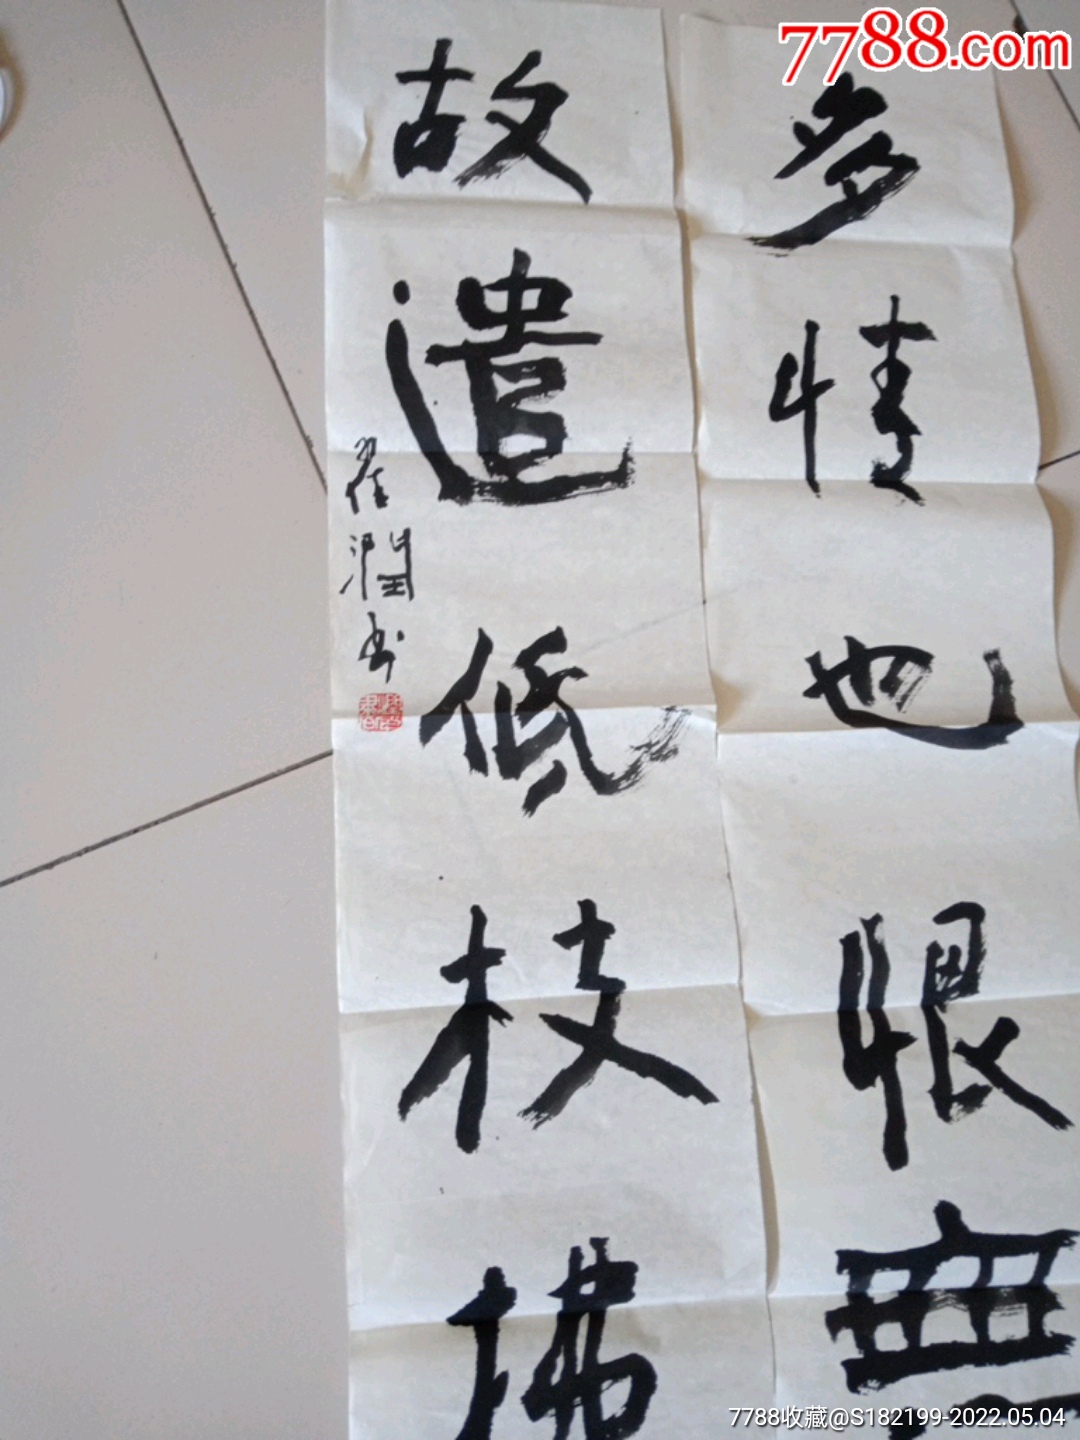 7788.com
多情也恨無
故遣低枝拂
崔潤书
7788收藏@S182199-2022.05.04